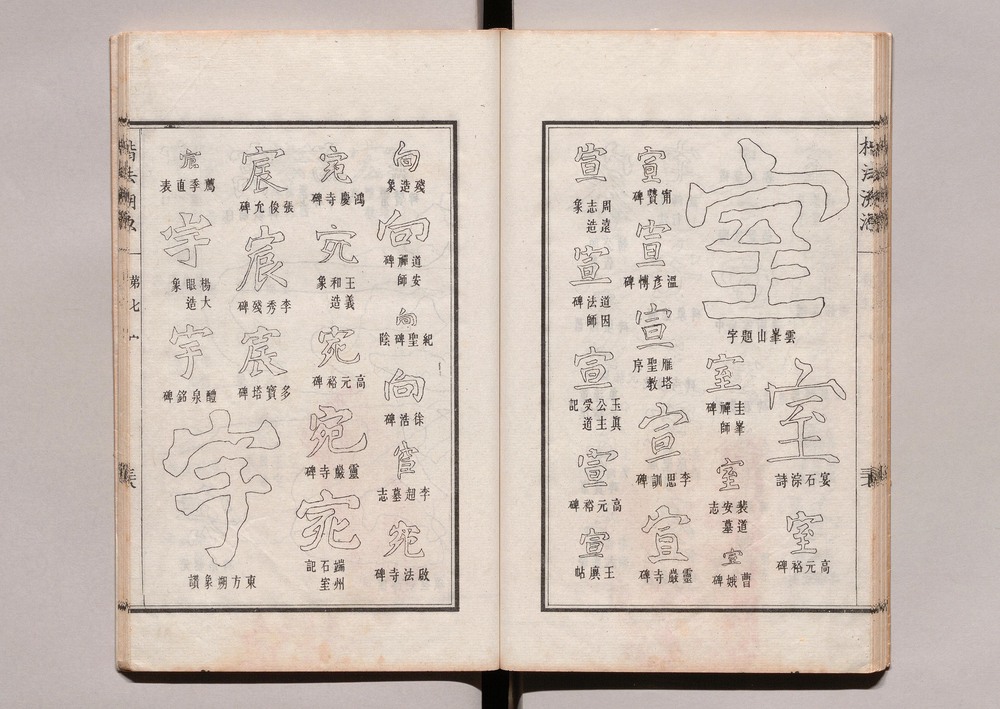 室
雲峯山題字
室
宴石淙詩
室
高元裕碑
室
圭峯禪師碑
室
裴道安墓志
宣
曹娥碑
宣
甯贙碑
宣
温彦博碑
宣
雁塔聖教序
宣
李思訓碑
宣
靈巖寺碑
宣
周遠志造象
宣
道因法師碑
宣
玉真公主受道記
宣
高元裕碑
宣
王廙帖
向
殘造象
向
道安禪師碑
向
紀聖碑陰
向
徐浩碑
李超墓志
宛
啟法寺碑
宛
鴻慶寺碑
宛
王義和造象
宛
高元裕碑
宛
靈巖寺碑
宛
端州石室記
宸
張俊允碑
宸
李秀殘碑
宸
多寶塔碑
宸
薦季直表
宇
楊大眼造象
宇
醴泉銘碑
宇
東方朔象讚
第七 宀